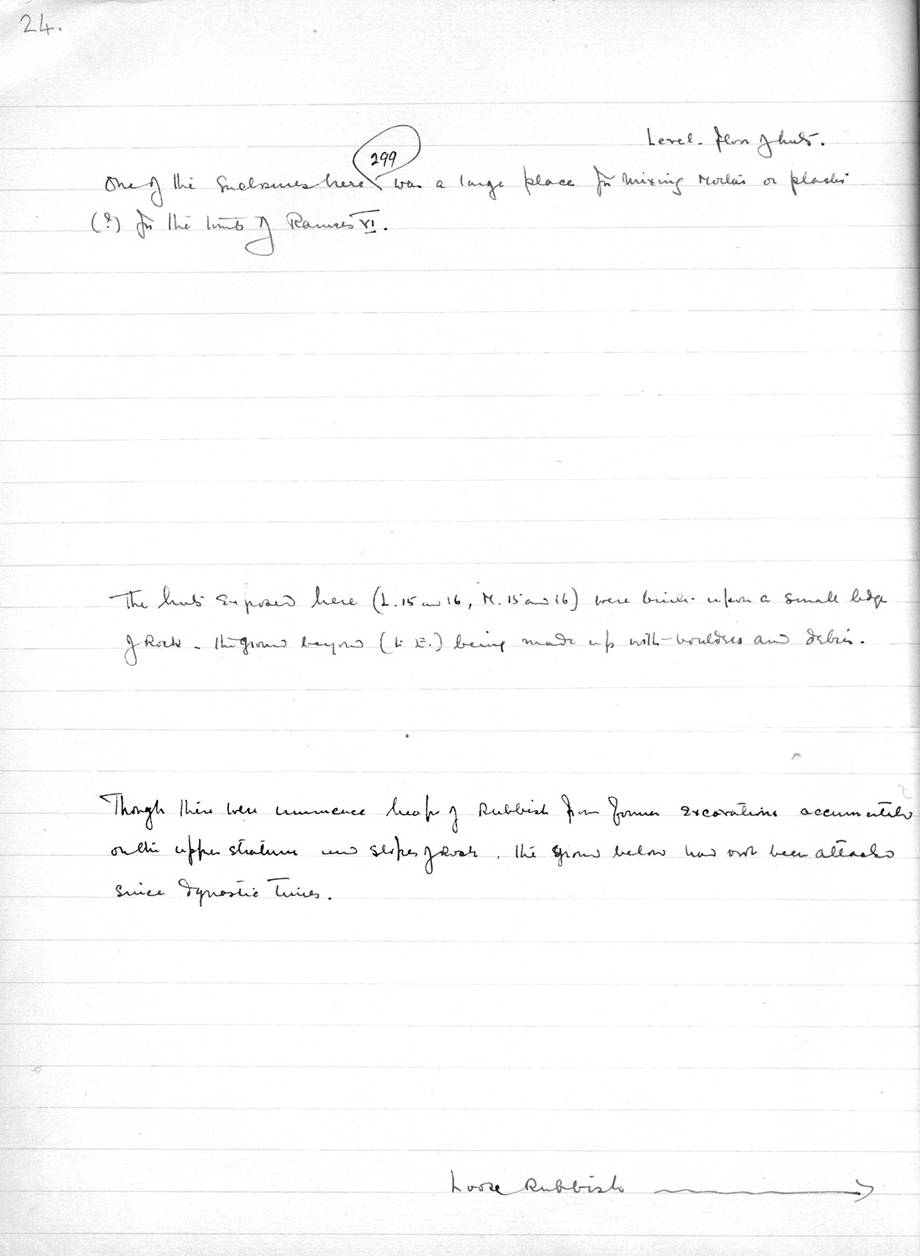 24.
Level. floor of huts.
299
One of the Enclosures here was a large place for mixing Mortar or plaster
(?) for the tomb of Ramses VI.
The huts exposed here (L.15 and 16, M.15 and 16) were built upon a small ledge
of Rock - the ground beyond (to E.) being made up with bouldres and debris.
Though there were immence heaps of Rubbish from former excavations accumulated
on the upper stratum and slopes of Rock, the ground below had not been attacked
since dynastic Times.
Loose Rubbish